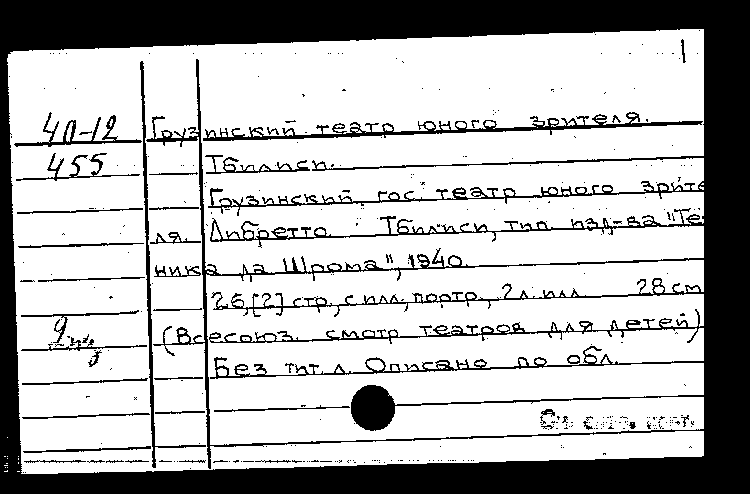 1
40-12 Грузинский театр юного зрителя.
455 Тбилиси.
Грузинский гос. театр юного зрите
ля. Либретто. Тбилиси, тип. изд-ва "Те
ника да Шрома", 1940.
26,[2] стр., с илл., портр., 2 л. илл. 28 см
(Всесоюз. смотр театров для детей)
Без тит. л. Описано по обл.